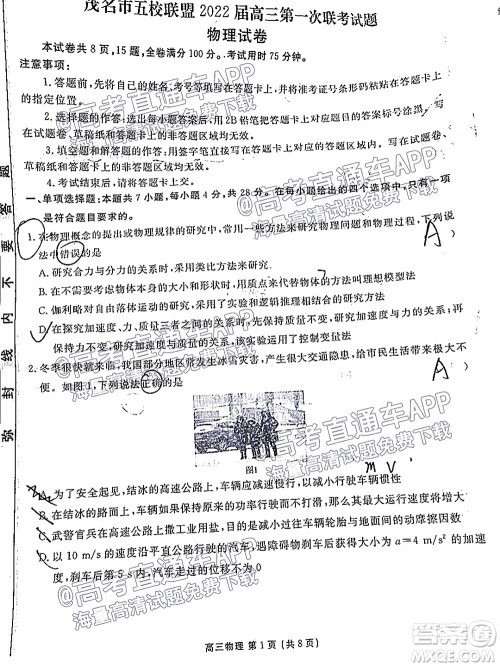 茂名市五校联盟 2022 届高三第一次联考试题
物理试卷
本试卷共 8 页，15 题，全卷满分 100 分。考试用时 75 分钟。
注意事项：
1. 答题前，先将自己的姓名、考号等填写在答题卡上，并将准考证号条形码粘贴在答题卡上
的指定位置。
2. 选择题的作答：每小题选出答案后，用 2B 铅笔把答题卡上对应题目的答案标号涂黑，写
在试题卷、草稿纸和答题卡上的非答题区域均无效。
3. 填空题和解答题的作答：用签字笔直接写在答题卡上对应的答题区域内，写在试题卷、
草稿纸和答题卡上的非答题区域均无效。
4. 考试结束后，请将答题卡上交。
一、单项选择题：本题共 7 小题，每小题 4 分，共 28 分。在每小题给出的四个选项中，只有一项
是符合题目要求的。
1. 在物理概念的提出或物理规律的研究中，常用到一些方法来研究物理问题和物理过程，下列说
法中错误的是
A
A. 研究合力与分力的关系时，采用类比方法来研究
B. 在不需要考虑物体本身的大小和形状时，用质点来代替物体的方法叫理想模型法
C. 伽利略对自由落体运动的研究，采用了实验和逻辑推理相结合的方法
D. 在探究加速度、力、质量三者之间的关系时，先保持质量不变研究加速度与力的关系，再
保持力不变，研究加速度与质量的关系，这里运用了控制变量法
2. 冬季燃烧就要来临，我国部分地区常发生大雾、大雪等自然灾害，给市民生活带来极大不
便。如图 1，下列说法正确的是
A
图1
m v
A. 为了安全起见，结冰的高速公路上，车辆应减速慢行，以减小行驶车辆的惯性
B. 在结冰的高速公路上，如果车辆保持原来的功率行驶而不打滑，那么其最大速度将增大
C. 武警官兵在高速公路上撒工业用盐，目的是为了增大车辆轮胎与地面间的动摩擦因数
D. 以 10 m/s 的速度沿平直公路行驶的汽车，遇障碍物刹车后获得大小为 a＝4 m/s² 的加速
度，刹车后第 5 s 内，汽车走过的位移为 0
高三物理 第 1 页（共 8 页）
弥 封 线 内 不 要 答 题
@高考直通车APP
海量高清试题免费下载
@高考直通车APP
海量高清试题免费下载